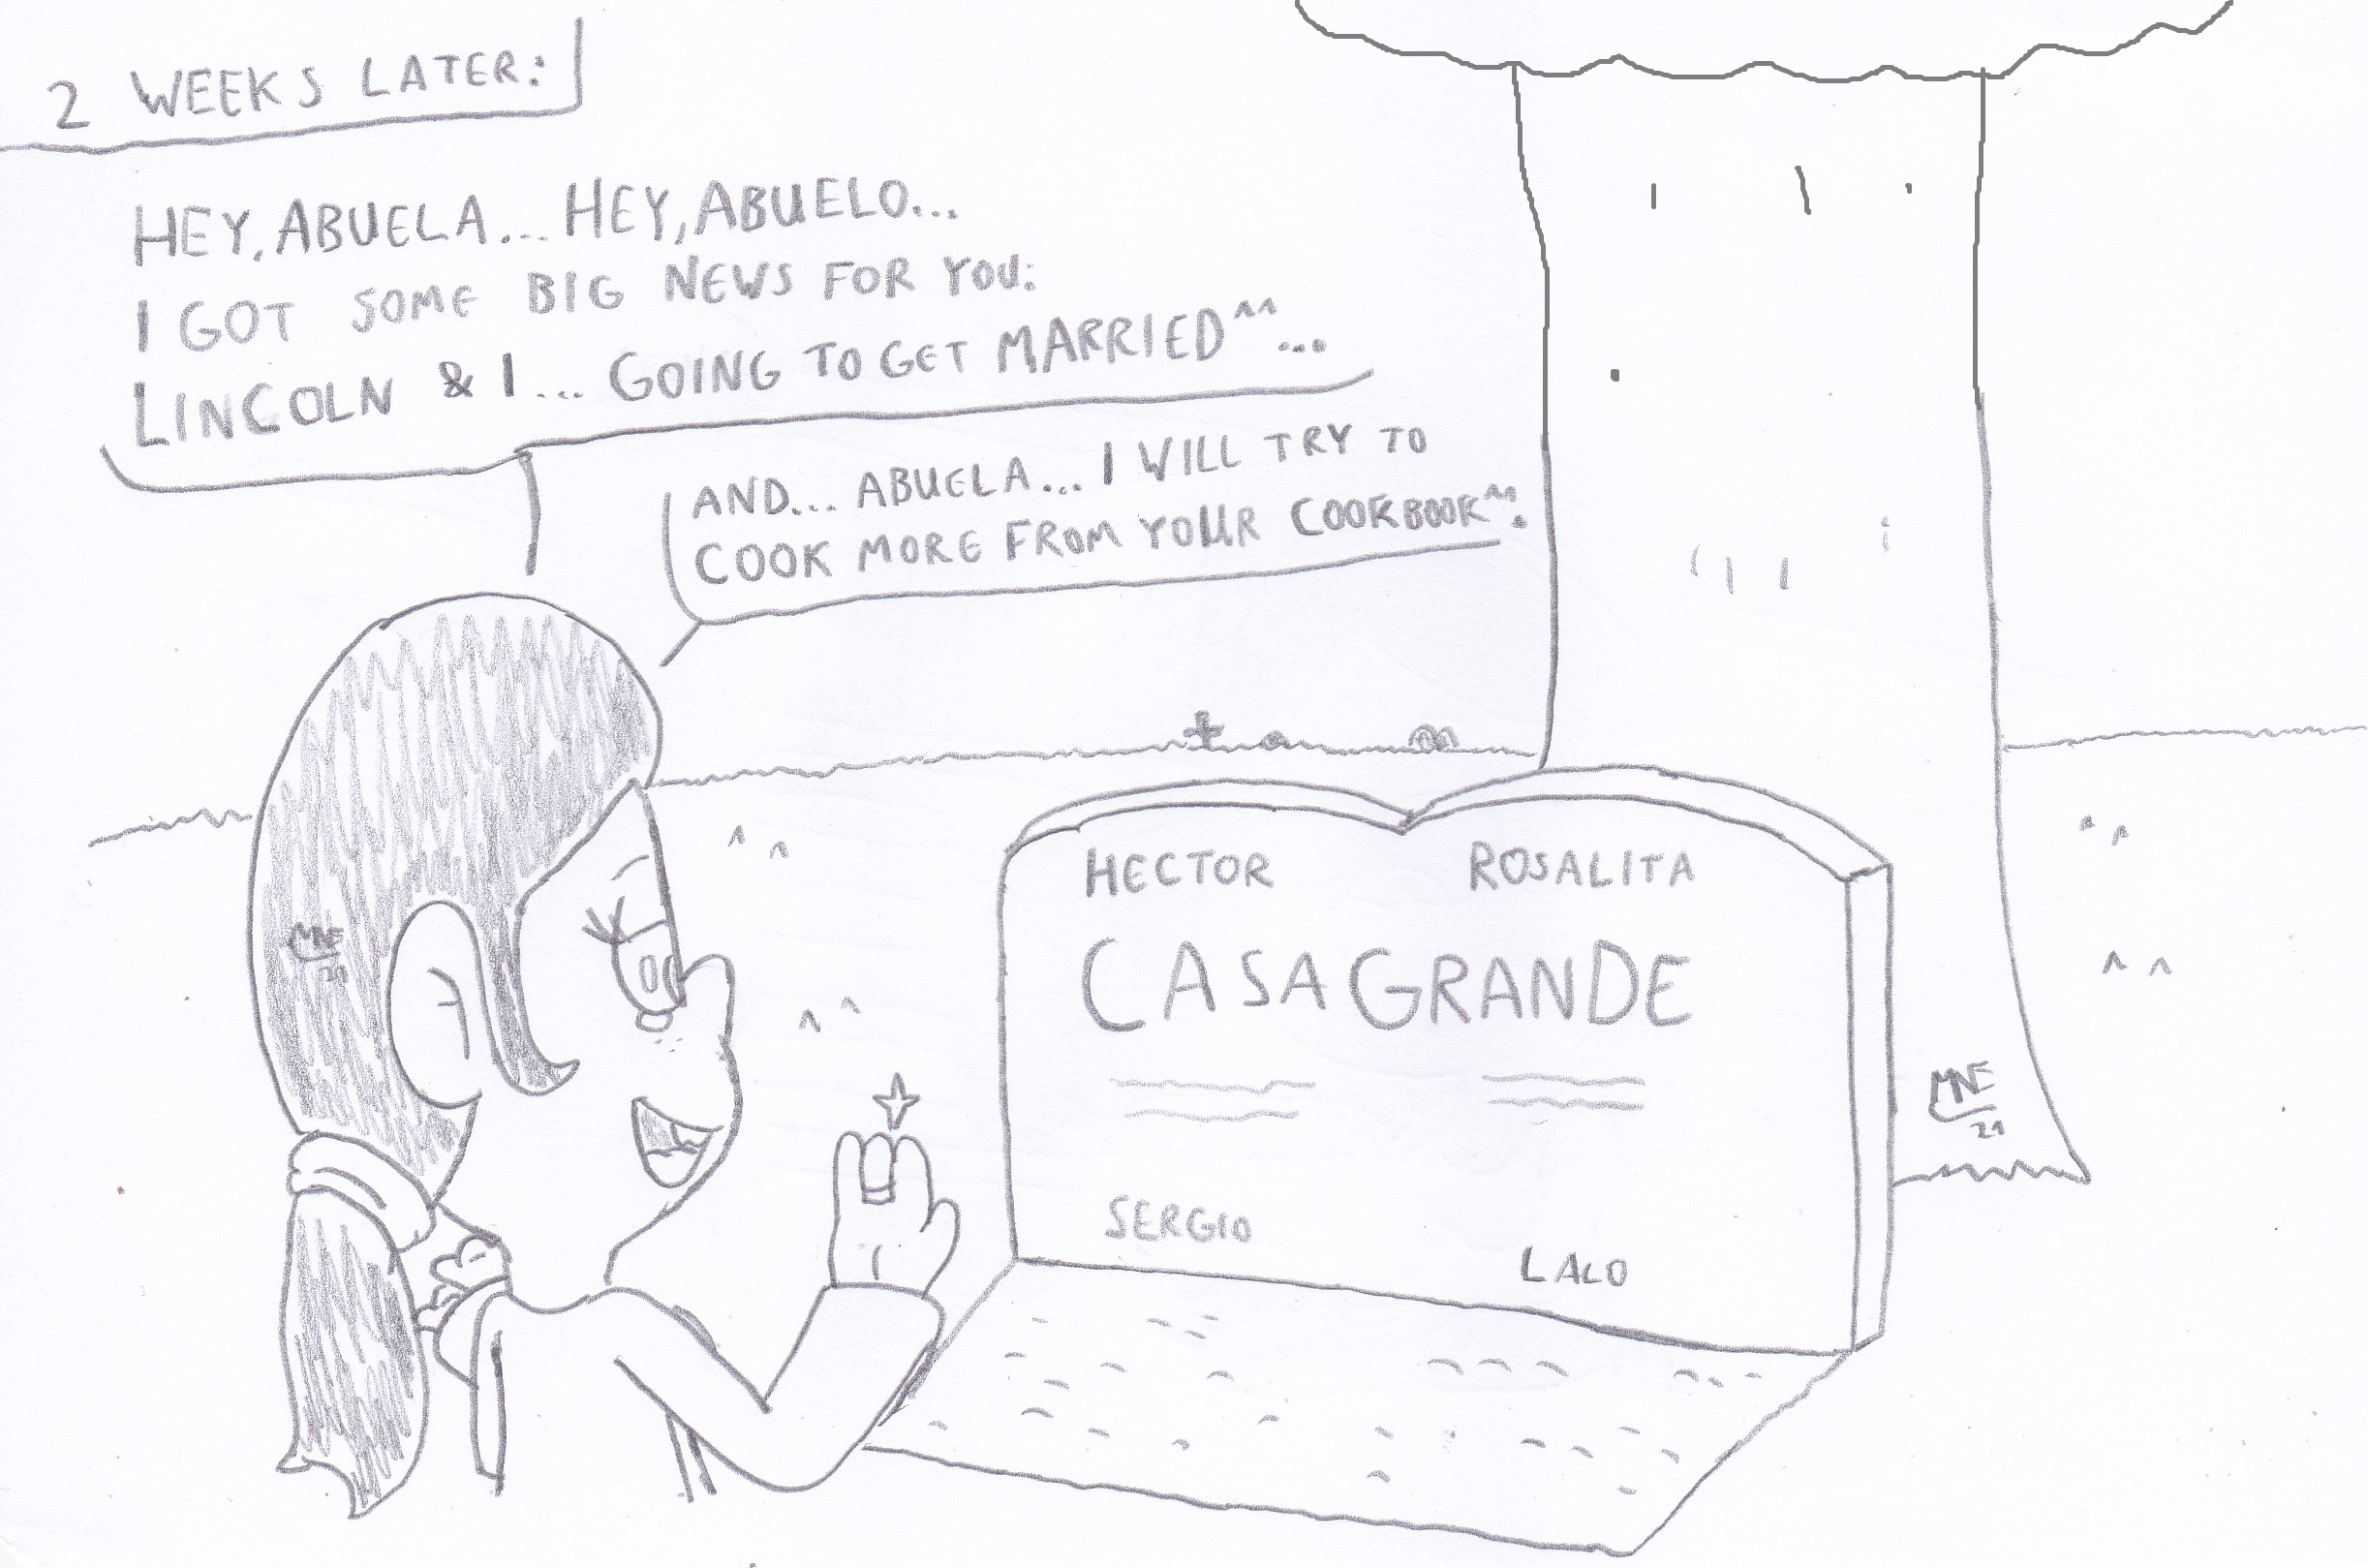 2 WEEKS LATER:
HEY, ABUELA... HEY, ABUELO...
I GOT SOME BIG NEWS FOR YOU:
LINCOLN & I... GOING TO GET MARRIED^^...
AND... ABUELA... I WILL TRY TO
COOK MORE FROM YOUR COOKBOOK^^.
HECTOR ROSALITA
CASAGRANDE
SERGIO LALO
MNE
21
MNE
21